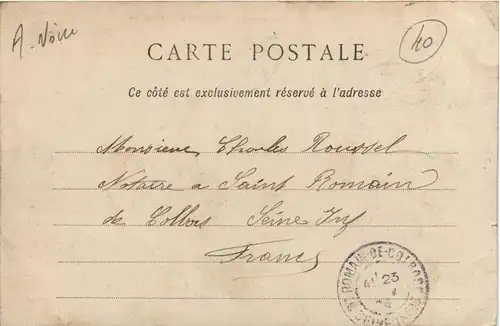 A-Noire
40
CARTE POSTALE
Ce côté est exclusivement réservé à l'adresse
Monsieur Charles Roussel
Notaire a Saint Romain
de Colbos Seine Inf
France
ST ROMAIN-DE-COLBOSC
23